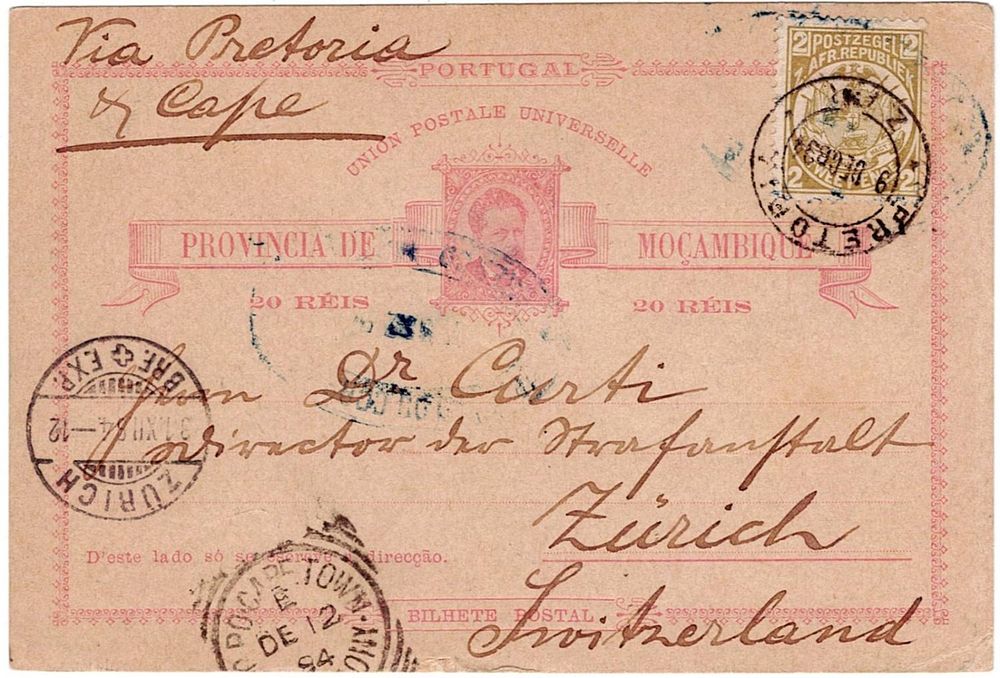 Via Pretoria
& Cape
PORTUGAL
UNION POSTALE UNIVERSELLE
2 POSTZEGEL 2
AFR. REPUBLIEK
2 2
PRETORIA
Z.A.R.
9 DEC 94
PROVINCIA DE MOÇAMBIQUE
20 RÉIS 20 RÉIS
BRF. EXP.
31 XII 94 — 12
ZÜRICH
Herrn Dr Curti
Director der Strafanstalt
Zürich
D'este lado só se escreve a direcção.
Switzerland
BILHETE POSTAL
G.P.O. CAPE TOWN
E
DE 12
94